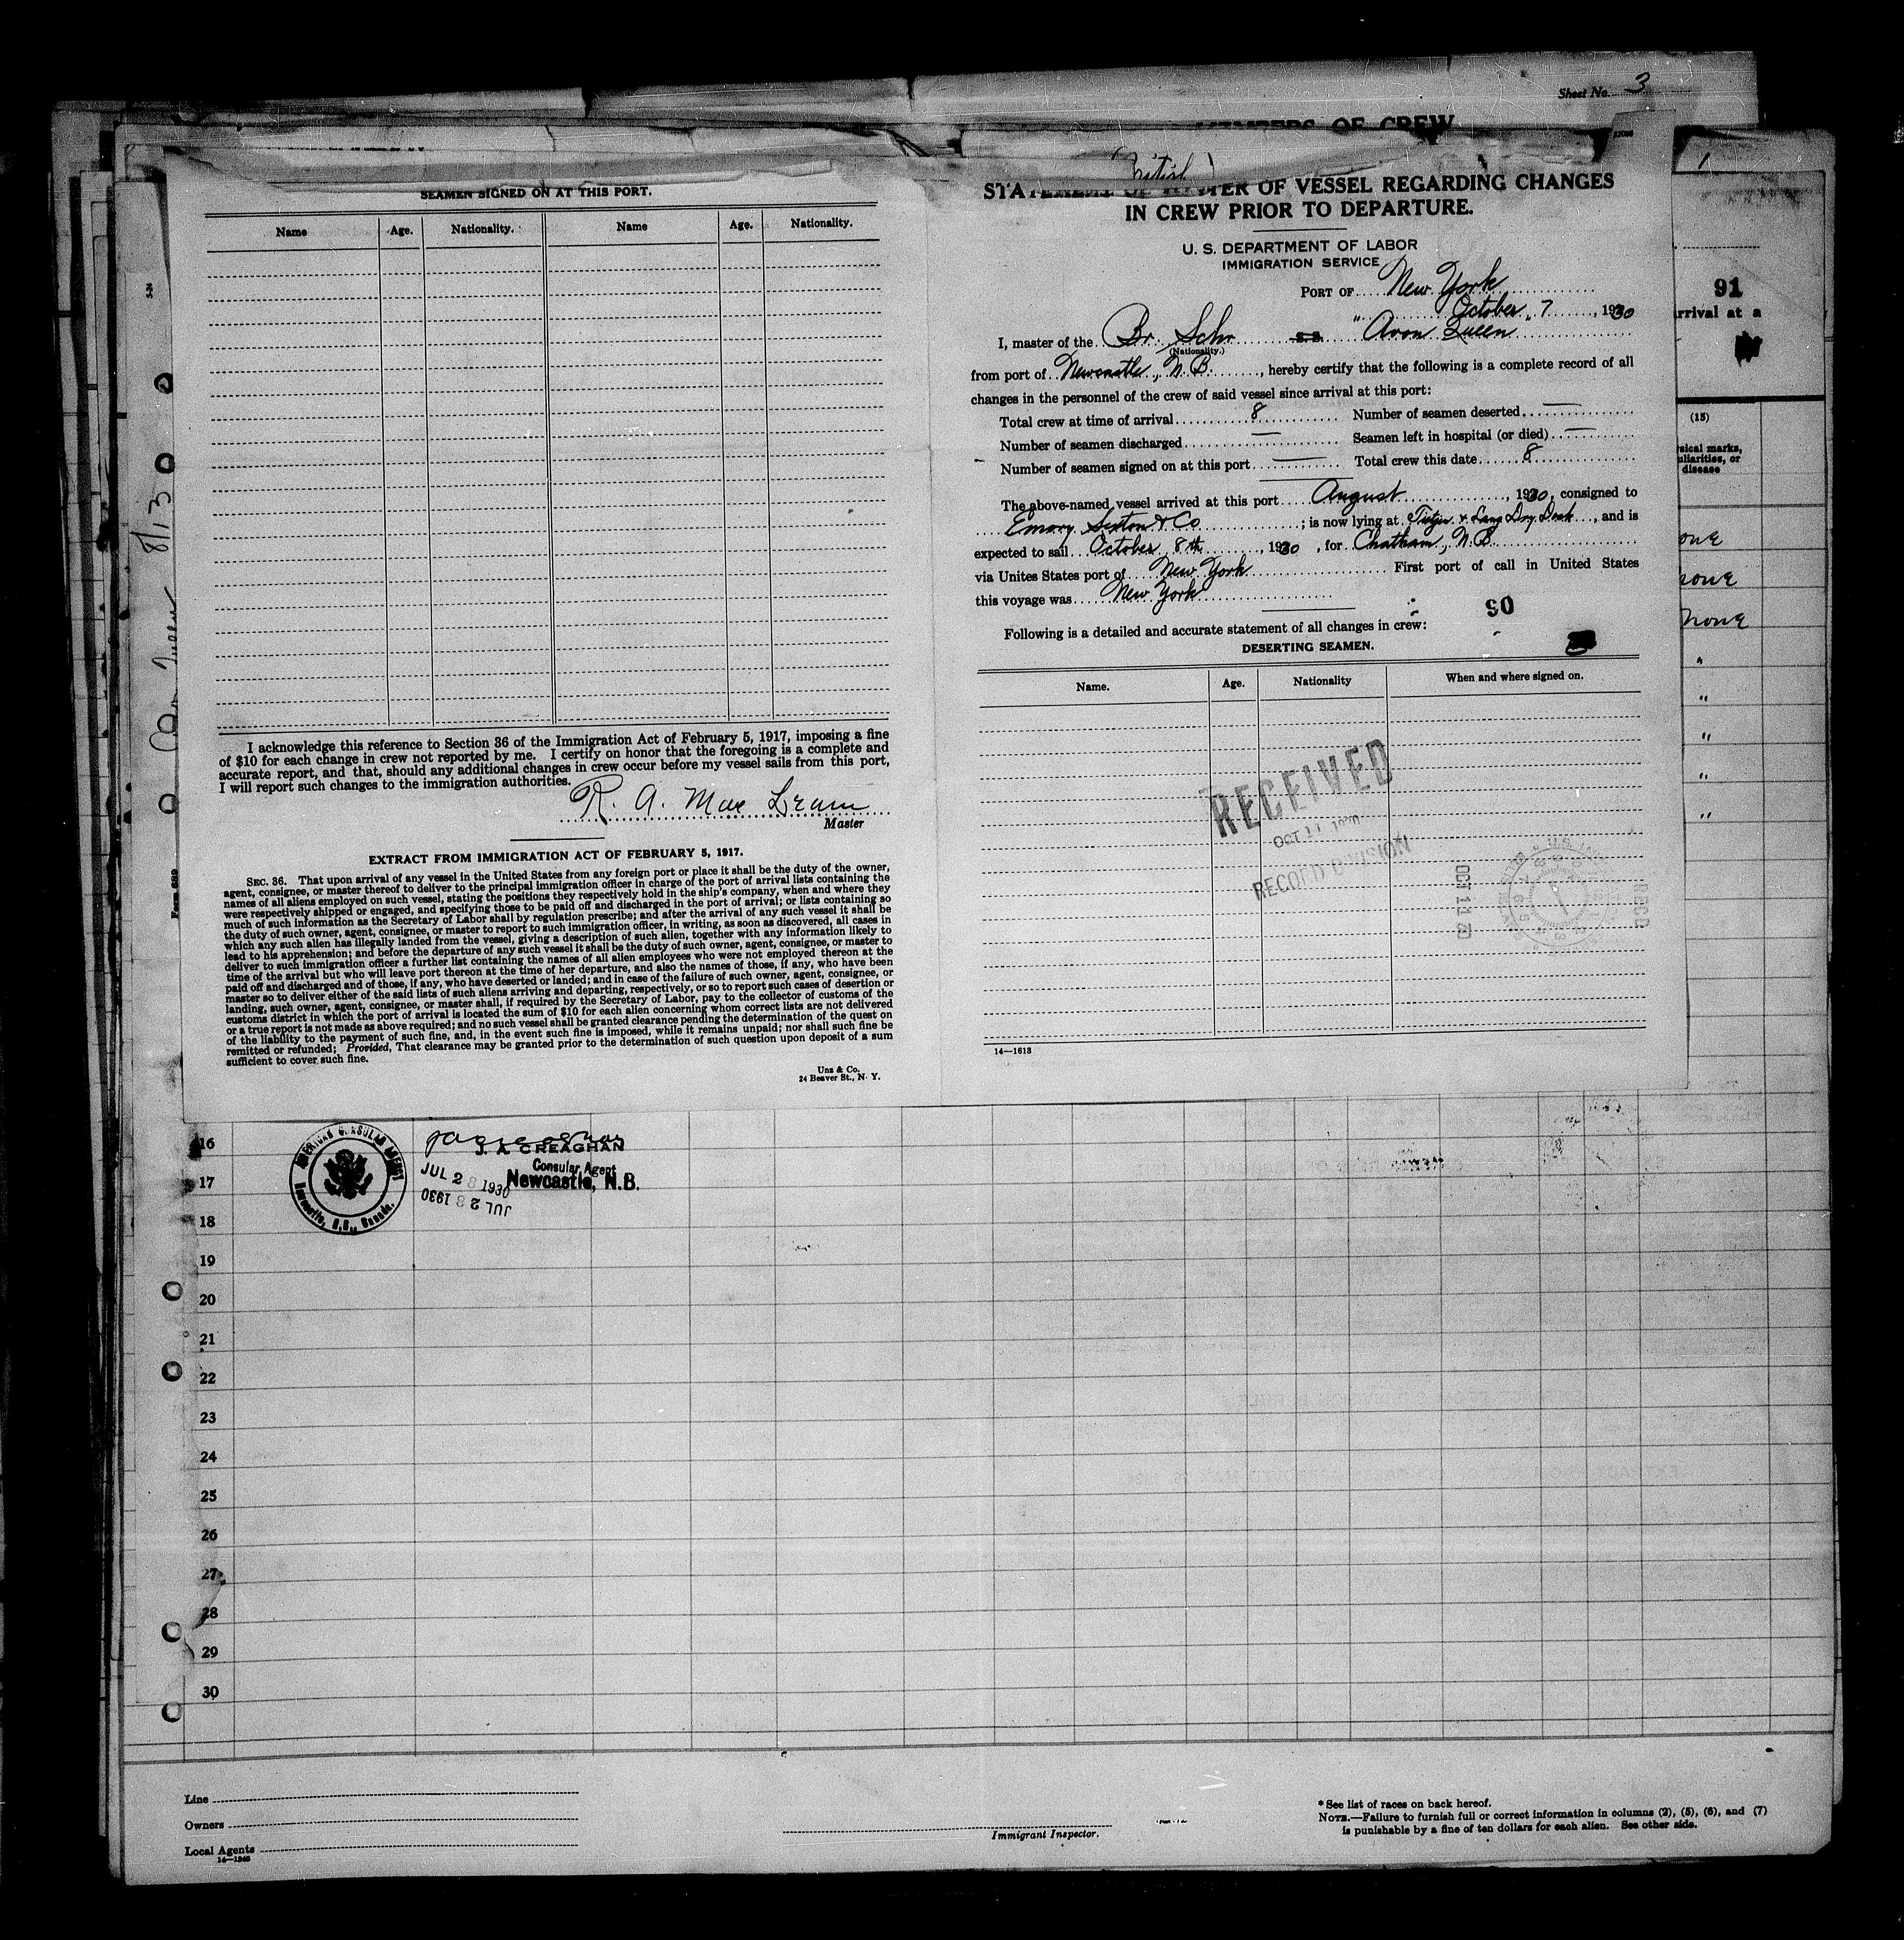 Sheet No. 3
MEMBERS OF CREW
1
SEAMEN SIGNED ON AT THIS PORT.
Name Age. Nationality. Name Age. Nationality.
I acknowledge this reference to Section 36 of the Immigration Act of February 5, 1917, imposing a fine
of $10 for each change in crew not reported by me. I certify on honor that the foregoing is a complete and
accurate report, and that, should any additional changes in crew occur before my vessel sails from this port,
I will report such changes to the immigration authorities.
R. A. Mac
Master
EXTRACT FROM IMMIGRATION ACT OF FEBRUARY 5, 1917.
SEC. 36. That upon arrival of any vessel in the United States from any foreign port or place it shall be the duty of the owner,
agent, consignee, or master thereof to deliver to the principal immigration officer in charge of the port of arrival lists containing the
names of all aliens employed on such vessel, stating the positions they respectively hold in the ship's company, when and where they
were respectively shipped or engaged, and specifying those to be paid off and discharged in the port of arrival; or lists containing so
much of such information as the Secretary of Labor shall by regulation prescribe; and after the arrival of any such vessel it shall be
the duty of such owner, agent, consignee, or master to report to such immigration officer, in writing, as soon as discovered, all cases in
which any such alien has illegally landed from the vessel, giving a description of such alien, together with any information likely to
lead to his apprehension; and before the departure of any such vessel it shall be the duty of such owner, agent, consignee, or master to
deliver to such immigration officer a further list containing the names of all alien employees who were not employed thereon at the
time of the arrival but who will leave port thereon at the time of her departure, and also the names of those, if any, who have been
paid off and discharged and of those, if any, who have deserted or landed; and in case of the failure of such owner, agent, consignee, or
master so to deliver either of the said lists of such aliens arriving and departing, respectively, or so to report such cases of desertion or
landing, such owner, agent, consignee, or master shall, if required by the Secretary of Labor, pay to the collector of customs of the
customs district in which the port of arrival is located the sum of $10 for each alien concerning whom correct lists are not delivered
or a true report is not made as above required; and no such vessel shall be granted clearance pending the determination of the quest on
of the liability to the payment of such fine, and, in the event such fine is imposed, while it remains unpaid; nor shall such fine be
remitted or refunded; Provided, That clearance may be granted prior to the determination of such question upon deposit of a sum
sufficient to cover such fine.
Unz & Co.
24 Beaver St., N. Y.
STATEMENT OF MASTER OF VESSEL REGARDING CHANGES
IN CREW PRIOR TO DEPARTURE.
U. S. DEPARTMENT OF LABOR
IMMIGRATION SERVICE
PORT OF New York
October 7, 1930
I, master of the Br. Schr S.S. "Avon Queen"
(Nationality.)
from port of Newcastle, N.B., hereby certify that the following is a complete record of all
changes in the personnel of the crew of said vessel since arrival at this port:
Total crew at time of arrival 8 Number of seamen deserted —
Number of seamen discharged — Seamen left in hospital (or died) —
Number of seamen signed on at this port — Total crew this date 8
The above-named vessel arrived at this port August, 1930, consigned to
Emory Sexton & Co; is now lying at Tietjen & Lang Dry Dock, and is
expected to sail October 8th, 1930, for Chatham, N.B.
via Unites States port of New York First port of call in United States
this voyage was New York
90
Following is a detailed and accurate statement of all changes in crew:
DESERTING SEAMEN.
Name. Age. Nationality When and where signed on.
RECEIVED
OCT 11 1930
RECORD DIVISION
OCT 11 30
REC'D
14—1613
91
rrival at a
(15)
sical marks,
uliarities, or
disease
one
none
none
"
"
"
"
"
5-24
Queen 8/13
Form 689
16
17
18
19
20
21
22
23
24
25
26
27
28
29
30
AMERICAN CONSULAR AGENCY
Newcastle, N.B., Canada.
J. A. CREAGHAN
Consular Agent
Newcastle, N.B.
JUL 28 1930
JUL 28 1930
Line
Owners
Local Agents
14—1240
Immigrant Inspector.
* See list of races on back hereof.
NOTE.—Failure to furnish full or correct information in columns (2), (5), (6), and (7)
is punishable by a fine of ten dollars for each alien. See other side.